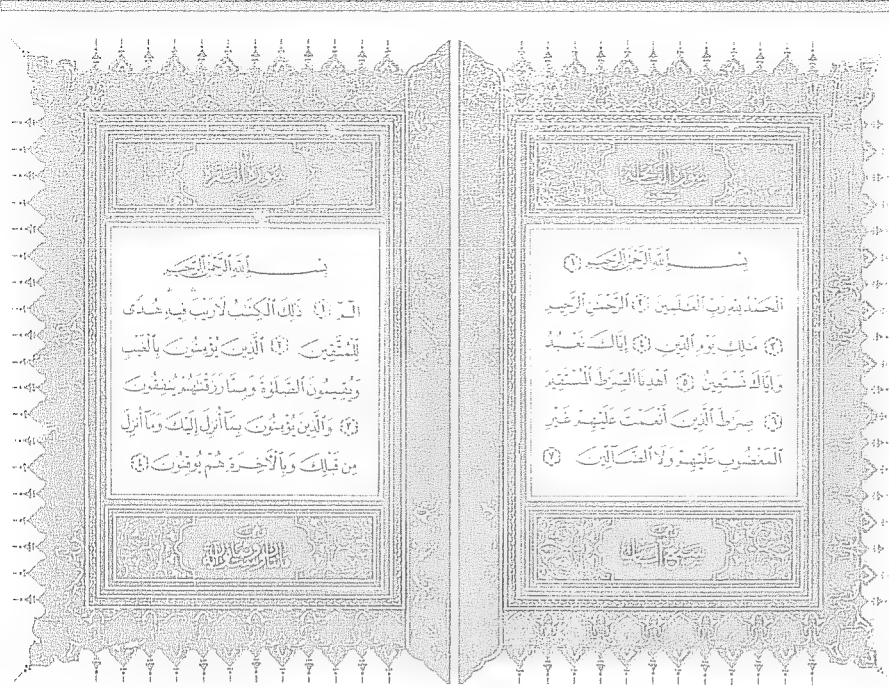 سورة الفاتحة
بسم الله الرحمن الرحيم ١
الحمد لله رب العلمين ٢ الرحمن الرحيم
٣ ملك يوم الدين ٤ إياك نعبد
وإياك نستعين ٥ اهدنا الصرط المستقيم
٦ صرط الذين أنعمت عليهم غير
المغضوب عليهم ولا الضالين ٧
سورة البقرة
بسم الله الرحمن الرحيم
الم ١ ذلك الكتب لا ريب فيه هدى
للمتقين ٢ الذين يؤمنون بالغيب
ويقيمون الصلوة ومما رزقنهم ينفقون
٣ والذين يؤمنون بما أنزل إليك وما أنزل
من قبلك وبالآخرة هم يوقنون ٤